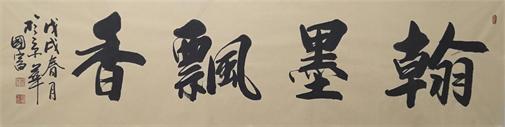 翰墨飄香
戊戌春月
於京華
國富